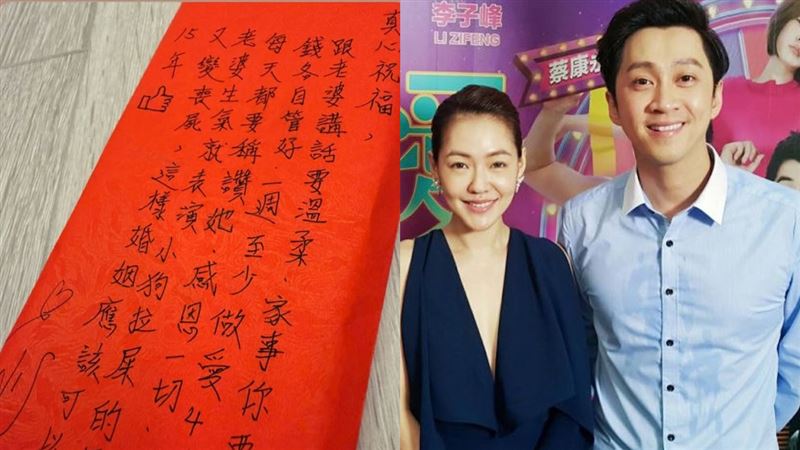 真心祝福，
跟老婆講話要溫柔．家事你要
錢各自管好．一週至少做愛4
每天都要稱讚她．感恩一切．
老婆生氣就表演小狗拉屎的
又變喪屍，這樣婚姻應該可
15年
李子峰
LI ZIFENG
蔡康永